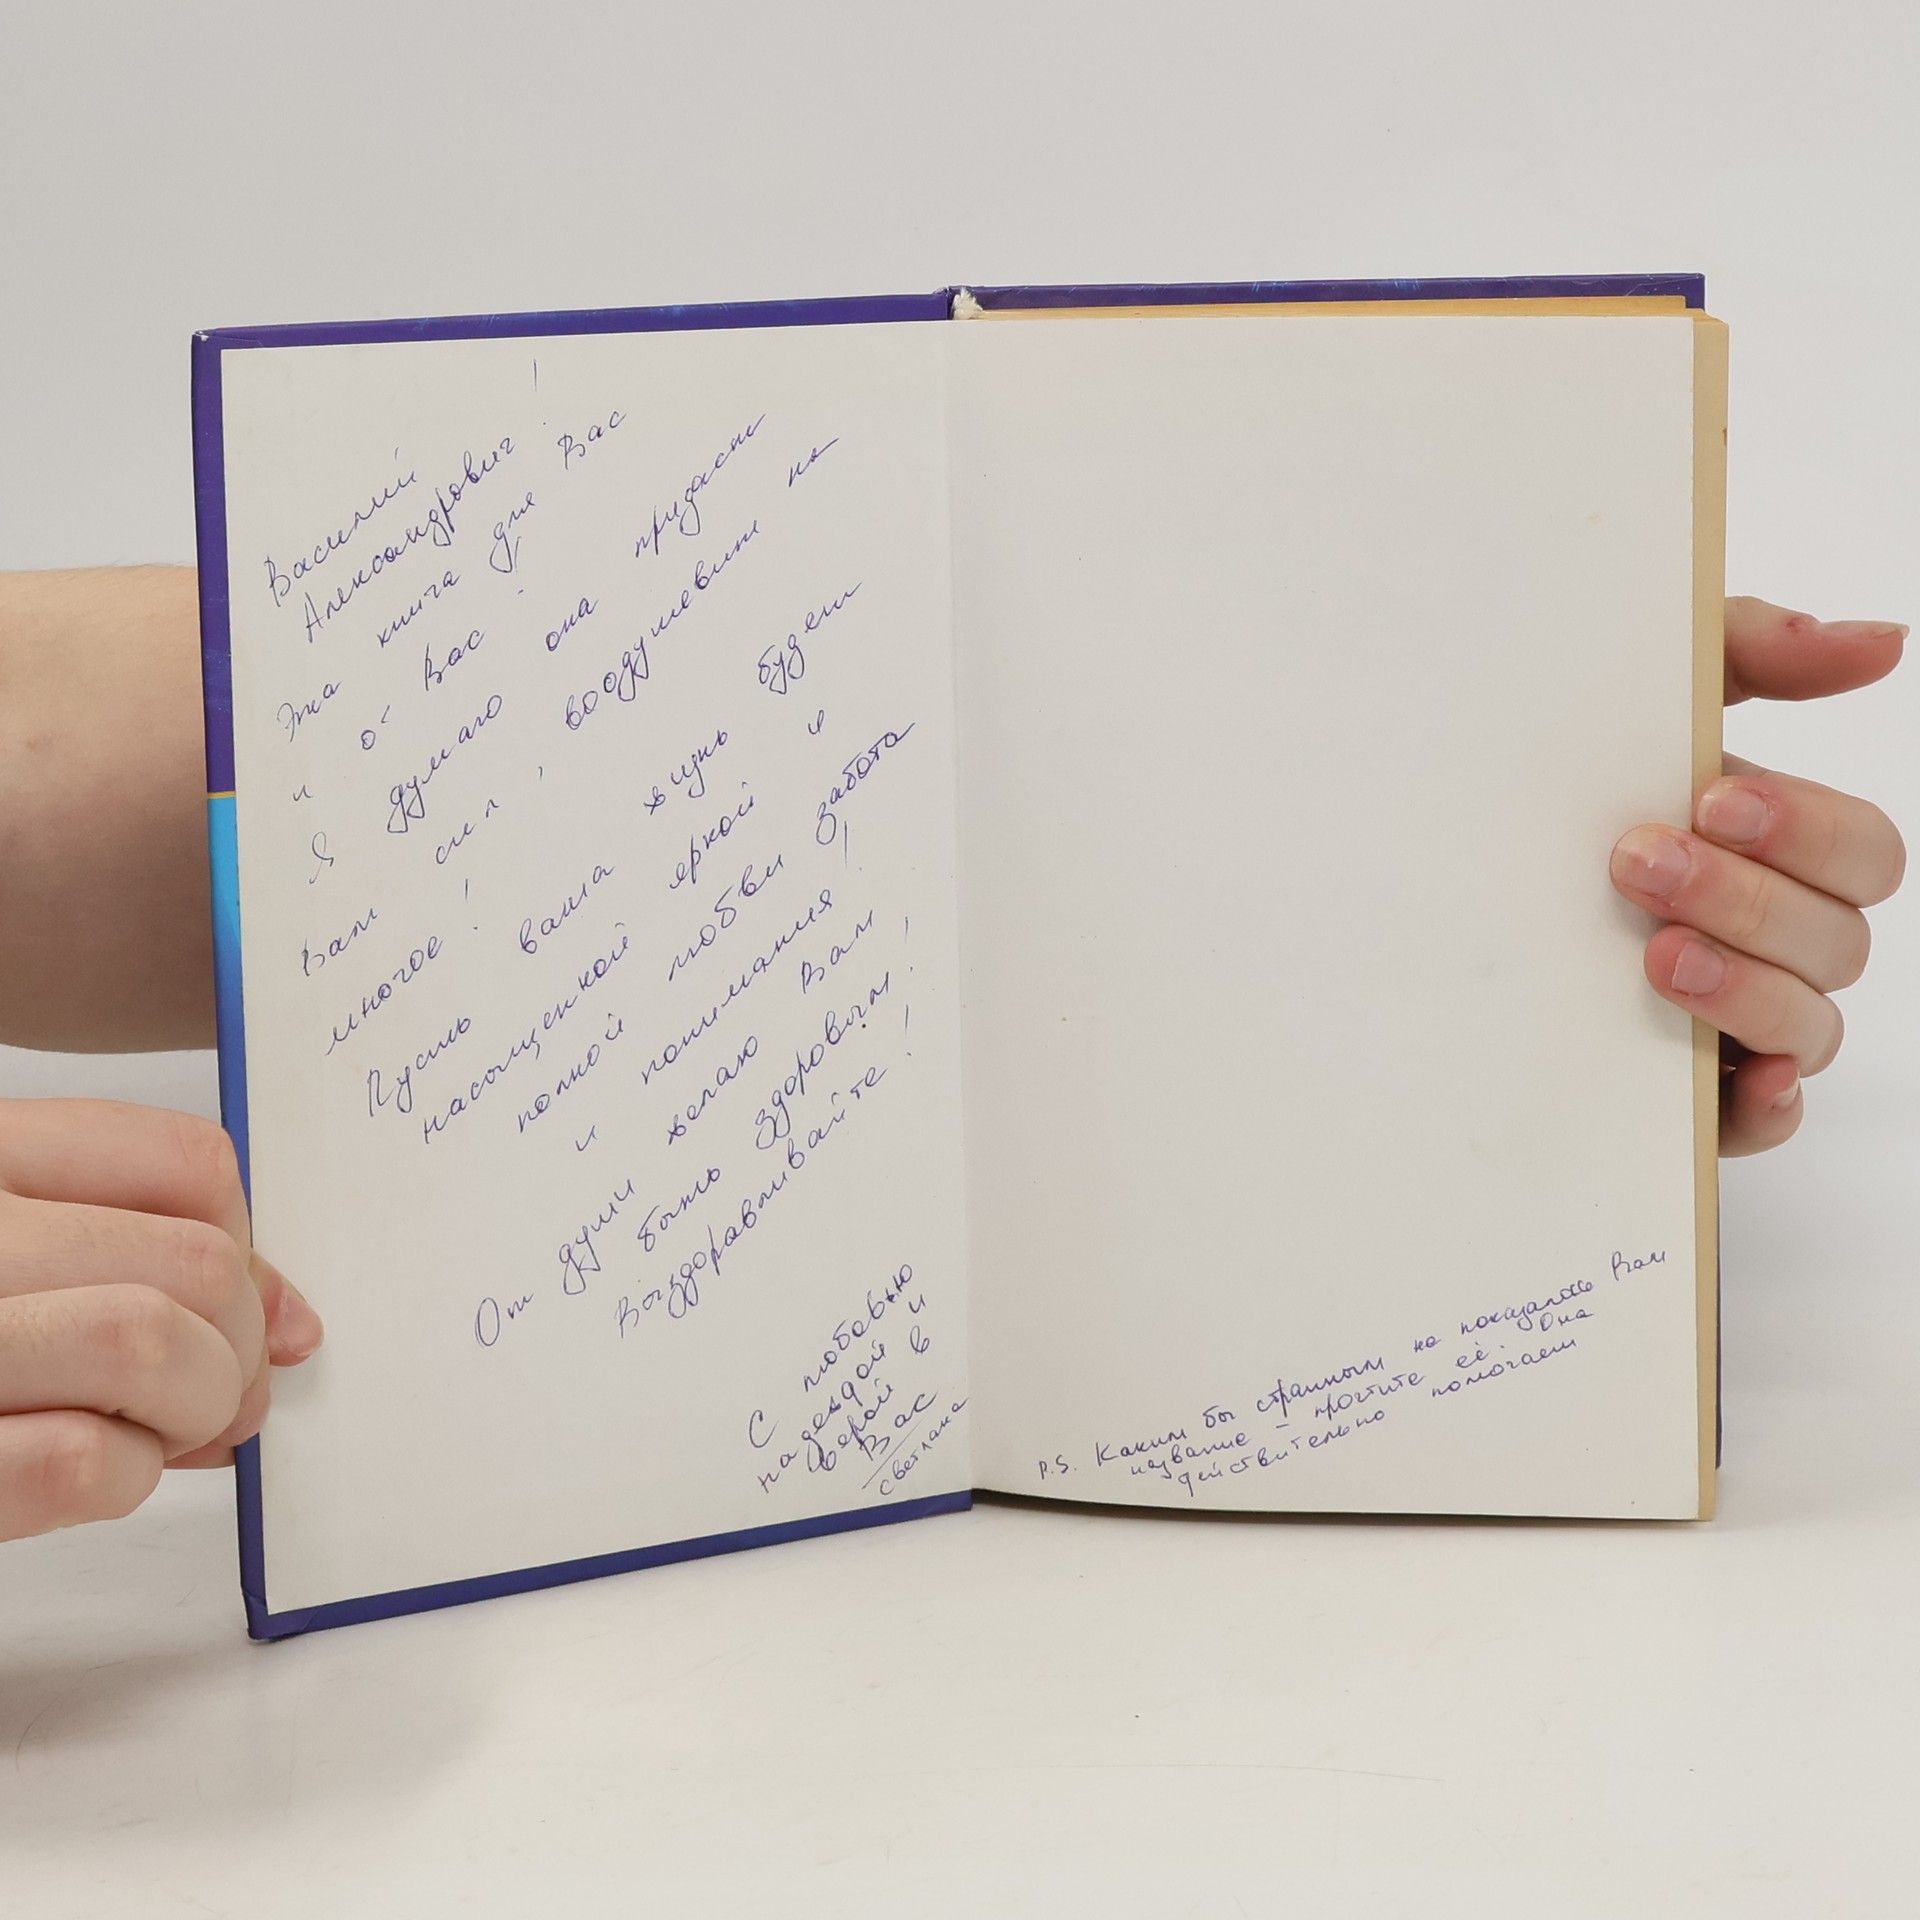 Василий
Александрович!
Эта книга для Вас
и о Вас!
Я думаю она придаст
Вам сил, воодушевит на
многое!
Пусть ваша жизнь будет
насыщенной яркой и
полной любви забота
и понимания!
От души желаю Вам
быть здоровым!
Выздоравливайте!
С любовью
надеждой и
верой в
Вас
Светлана
P.S. Каким бы странным не показалось Вам
название - прочтите её. Она
действительно помогает